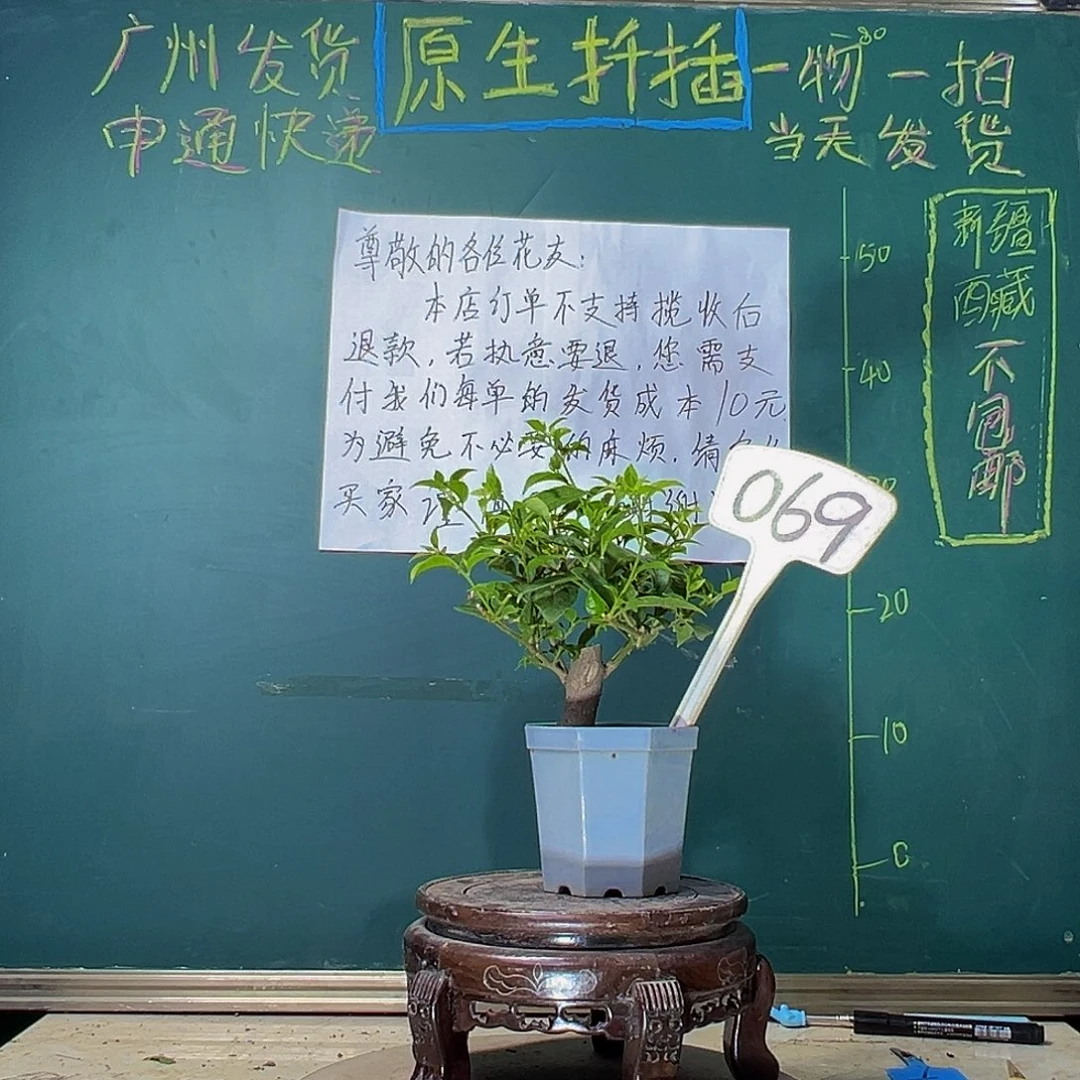 广州发货
申通快递
原生扦插
一物一拍
当天发货
尊敬的各位花友:
本店订单不支持揽收后
退款,若执意要退,您需支
付我们每单的发货成本10元
为避免不必要的麻烦.
买家理 谢
069
50
40
20
10
0
新疆
西藏
不
包
邮